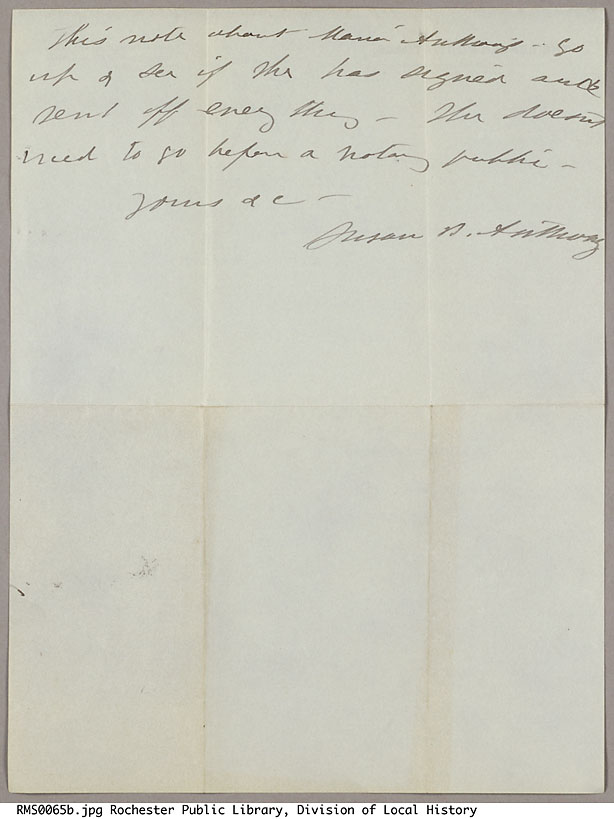 This note about Maria Anthony - Go
up & see if she has signed and
sent off every thing - She doesn't
need to go before a notary public -
Yours &c -
Susan B. Anthony
RMS0065b.jpg Rochester Public Library, Division of Local History